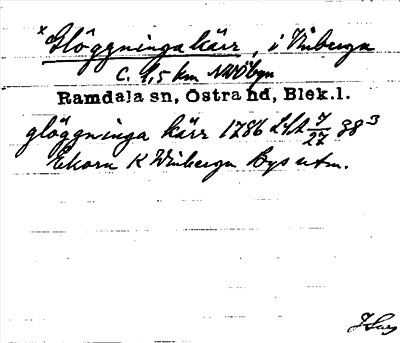 x Glöggninga kärr, i Vinberga
c. 1,5 km NNV byn
Ramdala sn, Östra hd, Blek.l.
glöggninga kärr 1786 LSA 7/27 38³
Ekorn K Winberga Bys utm.